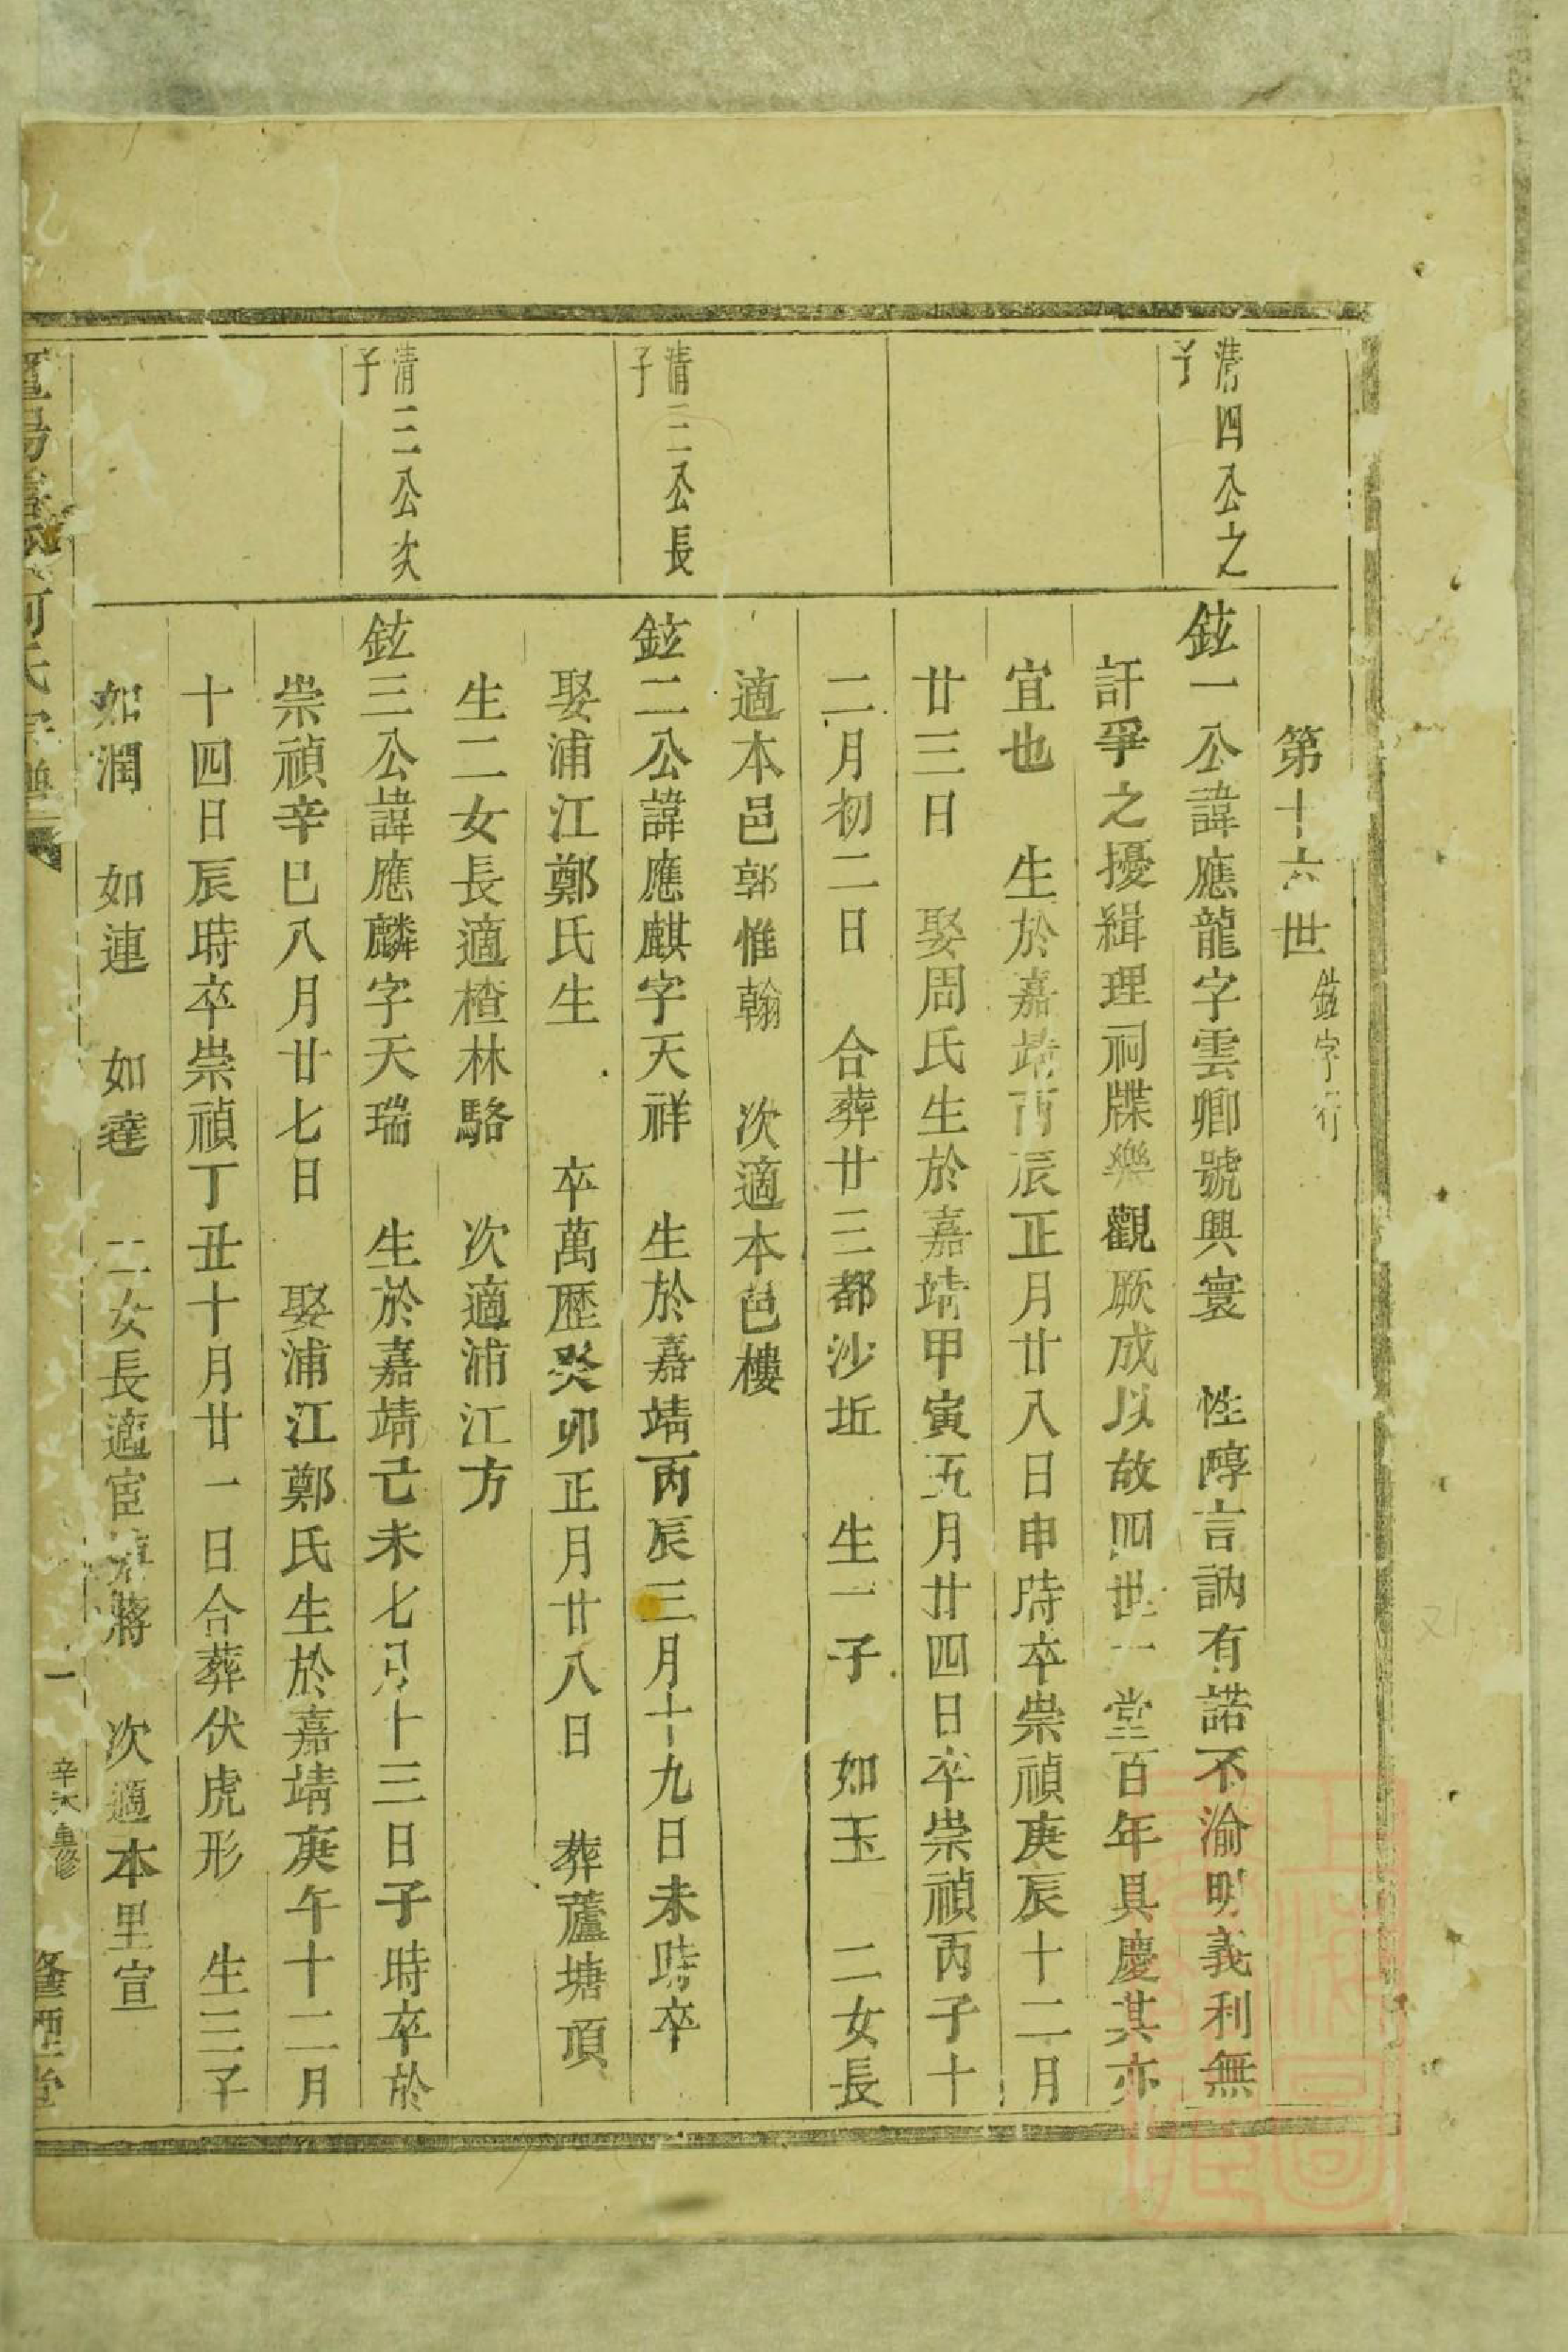 第十六世 鉉字行
清四公之子
鉉一公諱應龍字雲卿號興寰 性醇言訥有諾不渝明義利無
訐爭之擾緝理祠牒樂觀厥成以故四世一堂百年具慶其亦
宜也 生於嘉靖丙辰正月廿八日申時卒崇禎庚辰十二月
廿三日 娶周氏生於嘉靖甲寅五月廿四日卒崇禎丙子十
二月初二日 合葬廿三都沙坵 生一子 如玉 二女長
適本邑郭惟翰 次適本邑樓
清三公長子
鉉二公諱應麒字天祥 生於嘉靖丙辰三月十九日未時卒
娶浦江鄭氏生 卒萬歷癸卯正月廿八日 葬蘆塘項
生二女長適楂林駱 次適浦江方
清三公次子
鉉三公諱應麟字天瑞 生於嘉靖己未七月十三日子時卒於
崇禎辛巳八月廿七日 娶浦江鄭氏生於嘉靖庚午十二月
十四日辰時卒崇禎丁丑十月廿一日合葬伏虎形 生三子
如潤 如連 如達 二女長適宦蔣 次適本里宣
何氏宗譜
一
重修